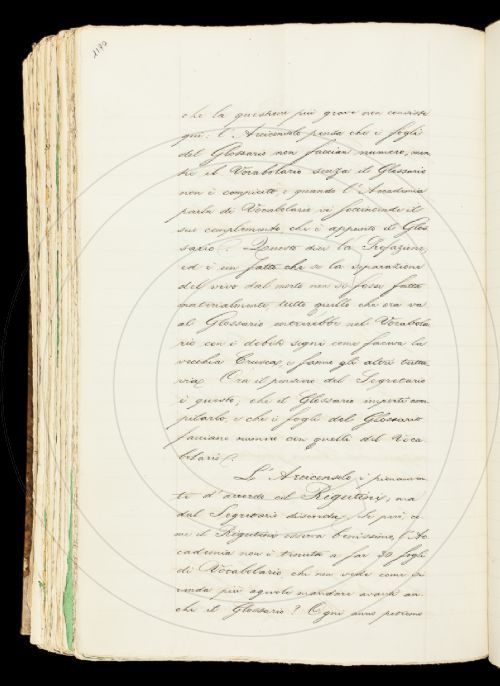 1170
che la questione più grave non consiste
qui: l'Arciconsolo pensa che i fogli
del Glossario non faccian numero, men
tre il Vocabolario senza il Glossario
non è compiuto, e quando l'Accademia
parla di Vocabolario vi
suo complemento, che è appunto il Glos
sario. Questo dice la Prefazione,
ed è un fatto che se la separazione
del vivo dal morto non si fosse fatta
materialmente, tutto quello che ora va
al Glossario entrerebbe nel Vocabola
rio con i debiti segni come faceva la
vecchia Crusca, e fanno gli altri tutta
via. Ora il pensiero del Segretario
è questo, che il Glossario importi com
pilarlo, e che i fogli del Glossario
facciano numero con quelli del Voca
bolario.
L'Arciconsolo è pienamen
te d'accordo col Rigutini, ma
dal Segretario discorda. Se però, co
me il Rigutini osserva benissimo, l'Ac
cademia non è tenuta a far 30 fogli
di Vocabolario, chi non vede come si
renda più agevole mandare avanti an
che il Glossario? Ogni anno potremo